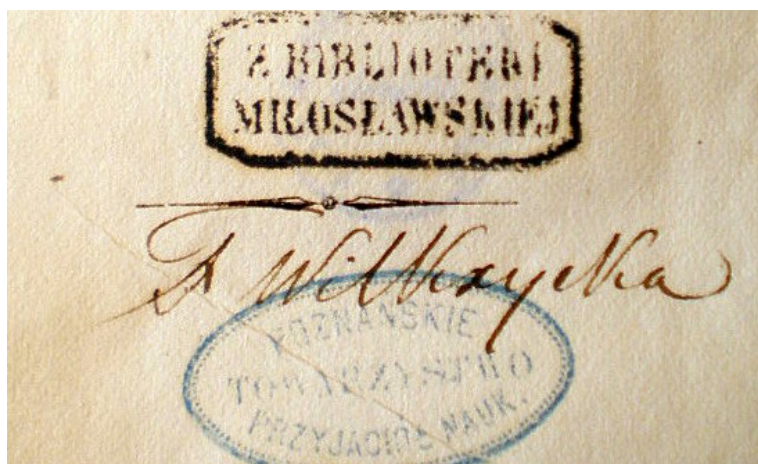 Z BIBLIOTEKI
MIŁOSŁAWSKIEJ
POZNAŃSKIE
TOWARZYSTWO
PRZYJACIÓŁ NAUK.